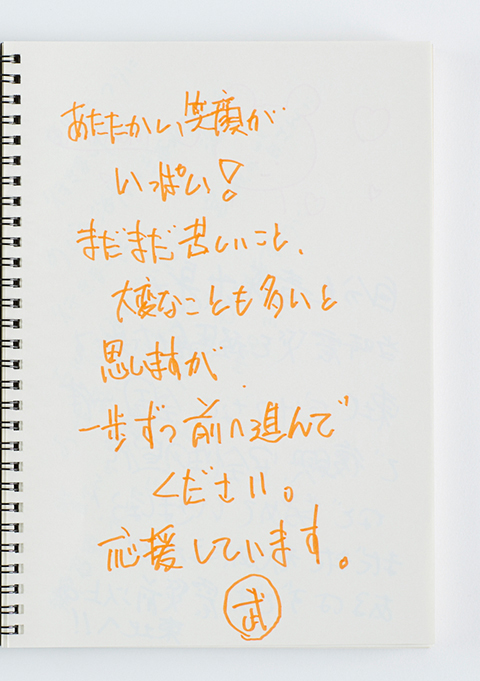 あたたかい笑顔が
いっぱい!
まだまだ苦しいこと、
大変なことも多いと
思いますが
一歩ずつ前へ進んで
ください。
応援しています。
武